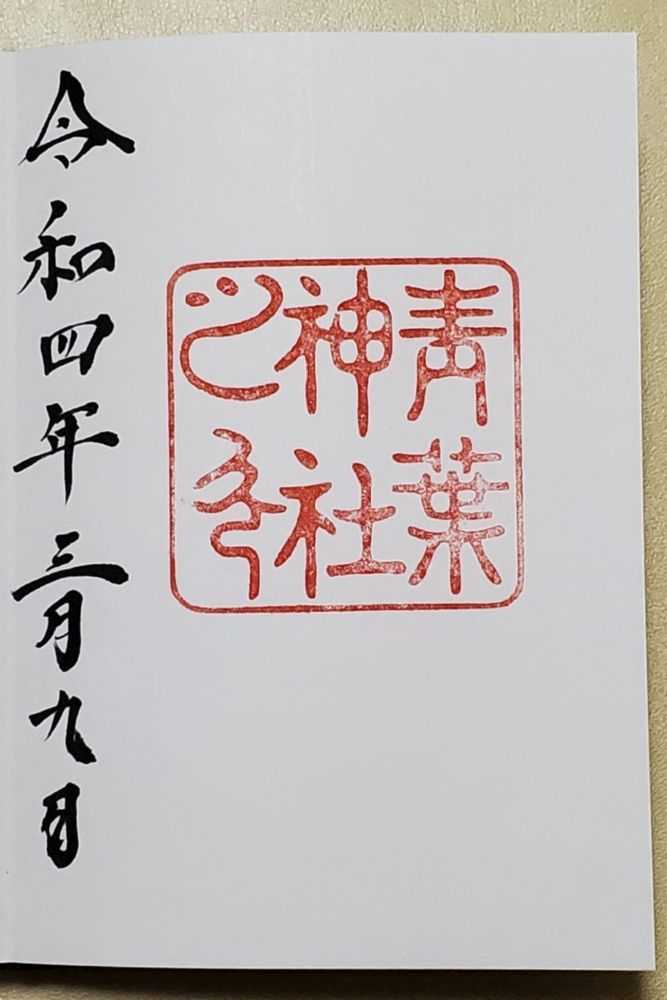 青葉
神社
之印
令和四年三月九日